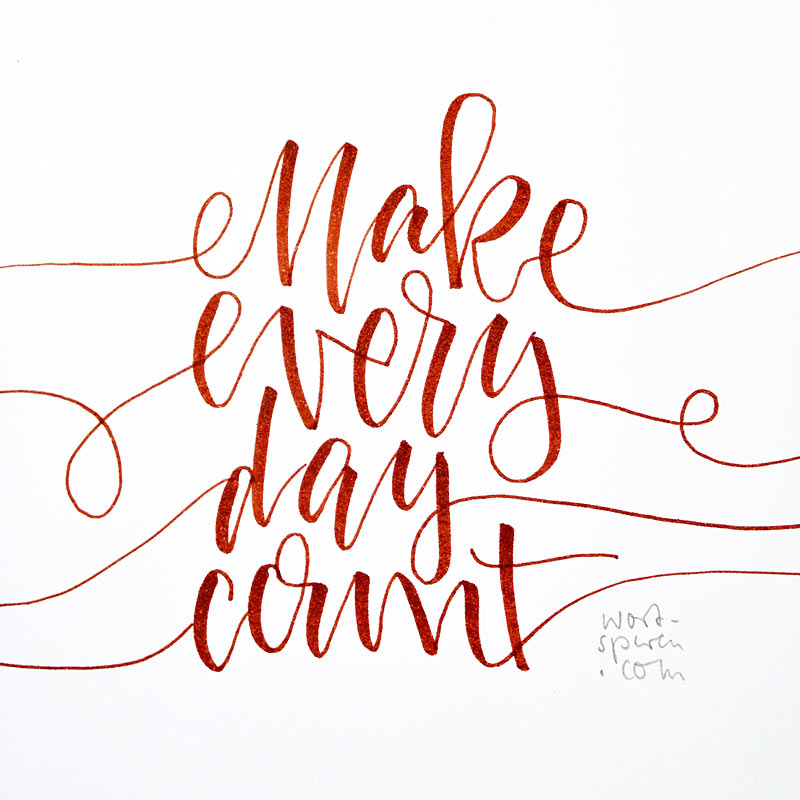 Make
every
day
count
wort-
spuren
.com